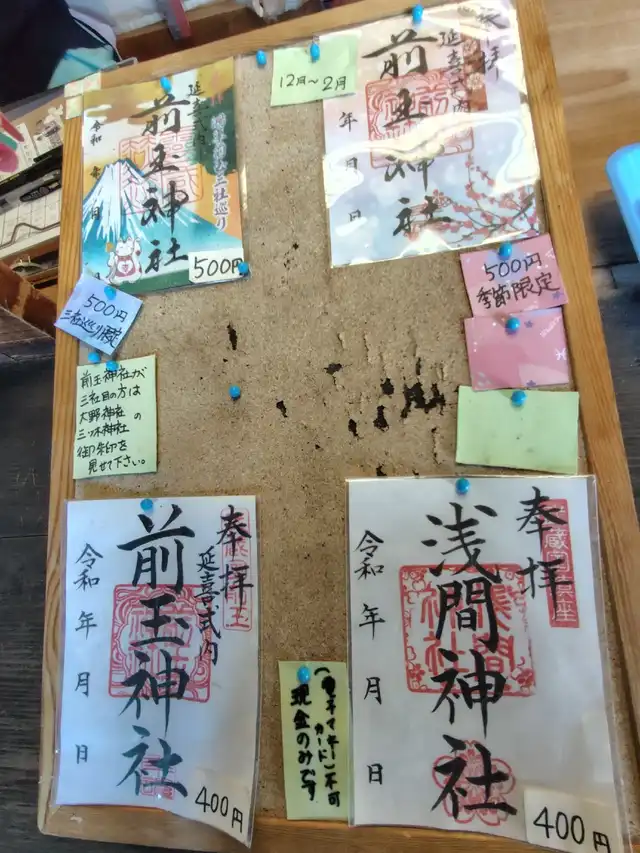 延喜式内
前玉神社
令和 年 月 日
三社巡り
500円
12月〜2月
奉拝
延喜式内
前玉神社
年 月 日
500円
季節限定
500円
三社巡り限定
前玉神社が
三社目の方は
大野神社の
三ツ木神社
御朱印を
見せて下さい。
奉拝
延喜式内
前玉神社
令和 年 月 日
400円
(電子マネー
カード)不可
現金のみです
奉拝
浅間神社
令和 年 月 日
400円